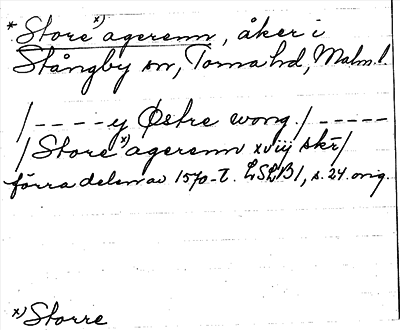 * Store x) agerenn, åker i
Stångby sn, Torna hd, Malm. l.
/----y Østre wong./-----
/Store x) agerenn xviij skr/
förra delen av 1570-t. LSLB1, s. 24. orig.
x) Storre